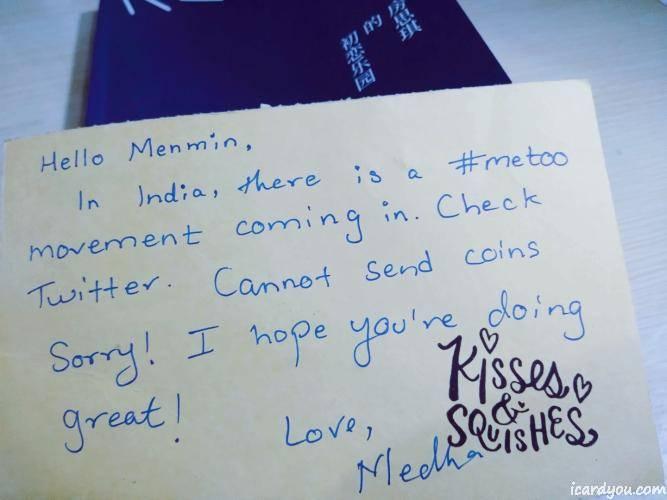 房思琪
的
初恋乐园
Hello Menmin,
In India, there is a #metoo
movement coming in. Check
Twitter. Cannot send coins
Sorry! I hope you're doing
great!
Love,
Medha
Kisses
&
SQUISHES
icardyou.com